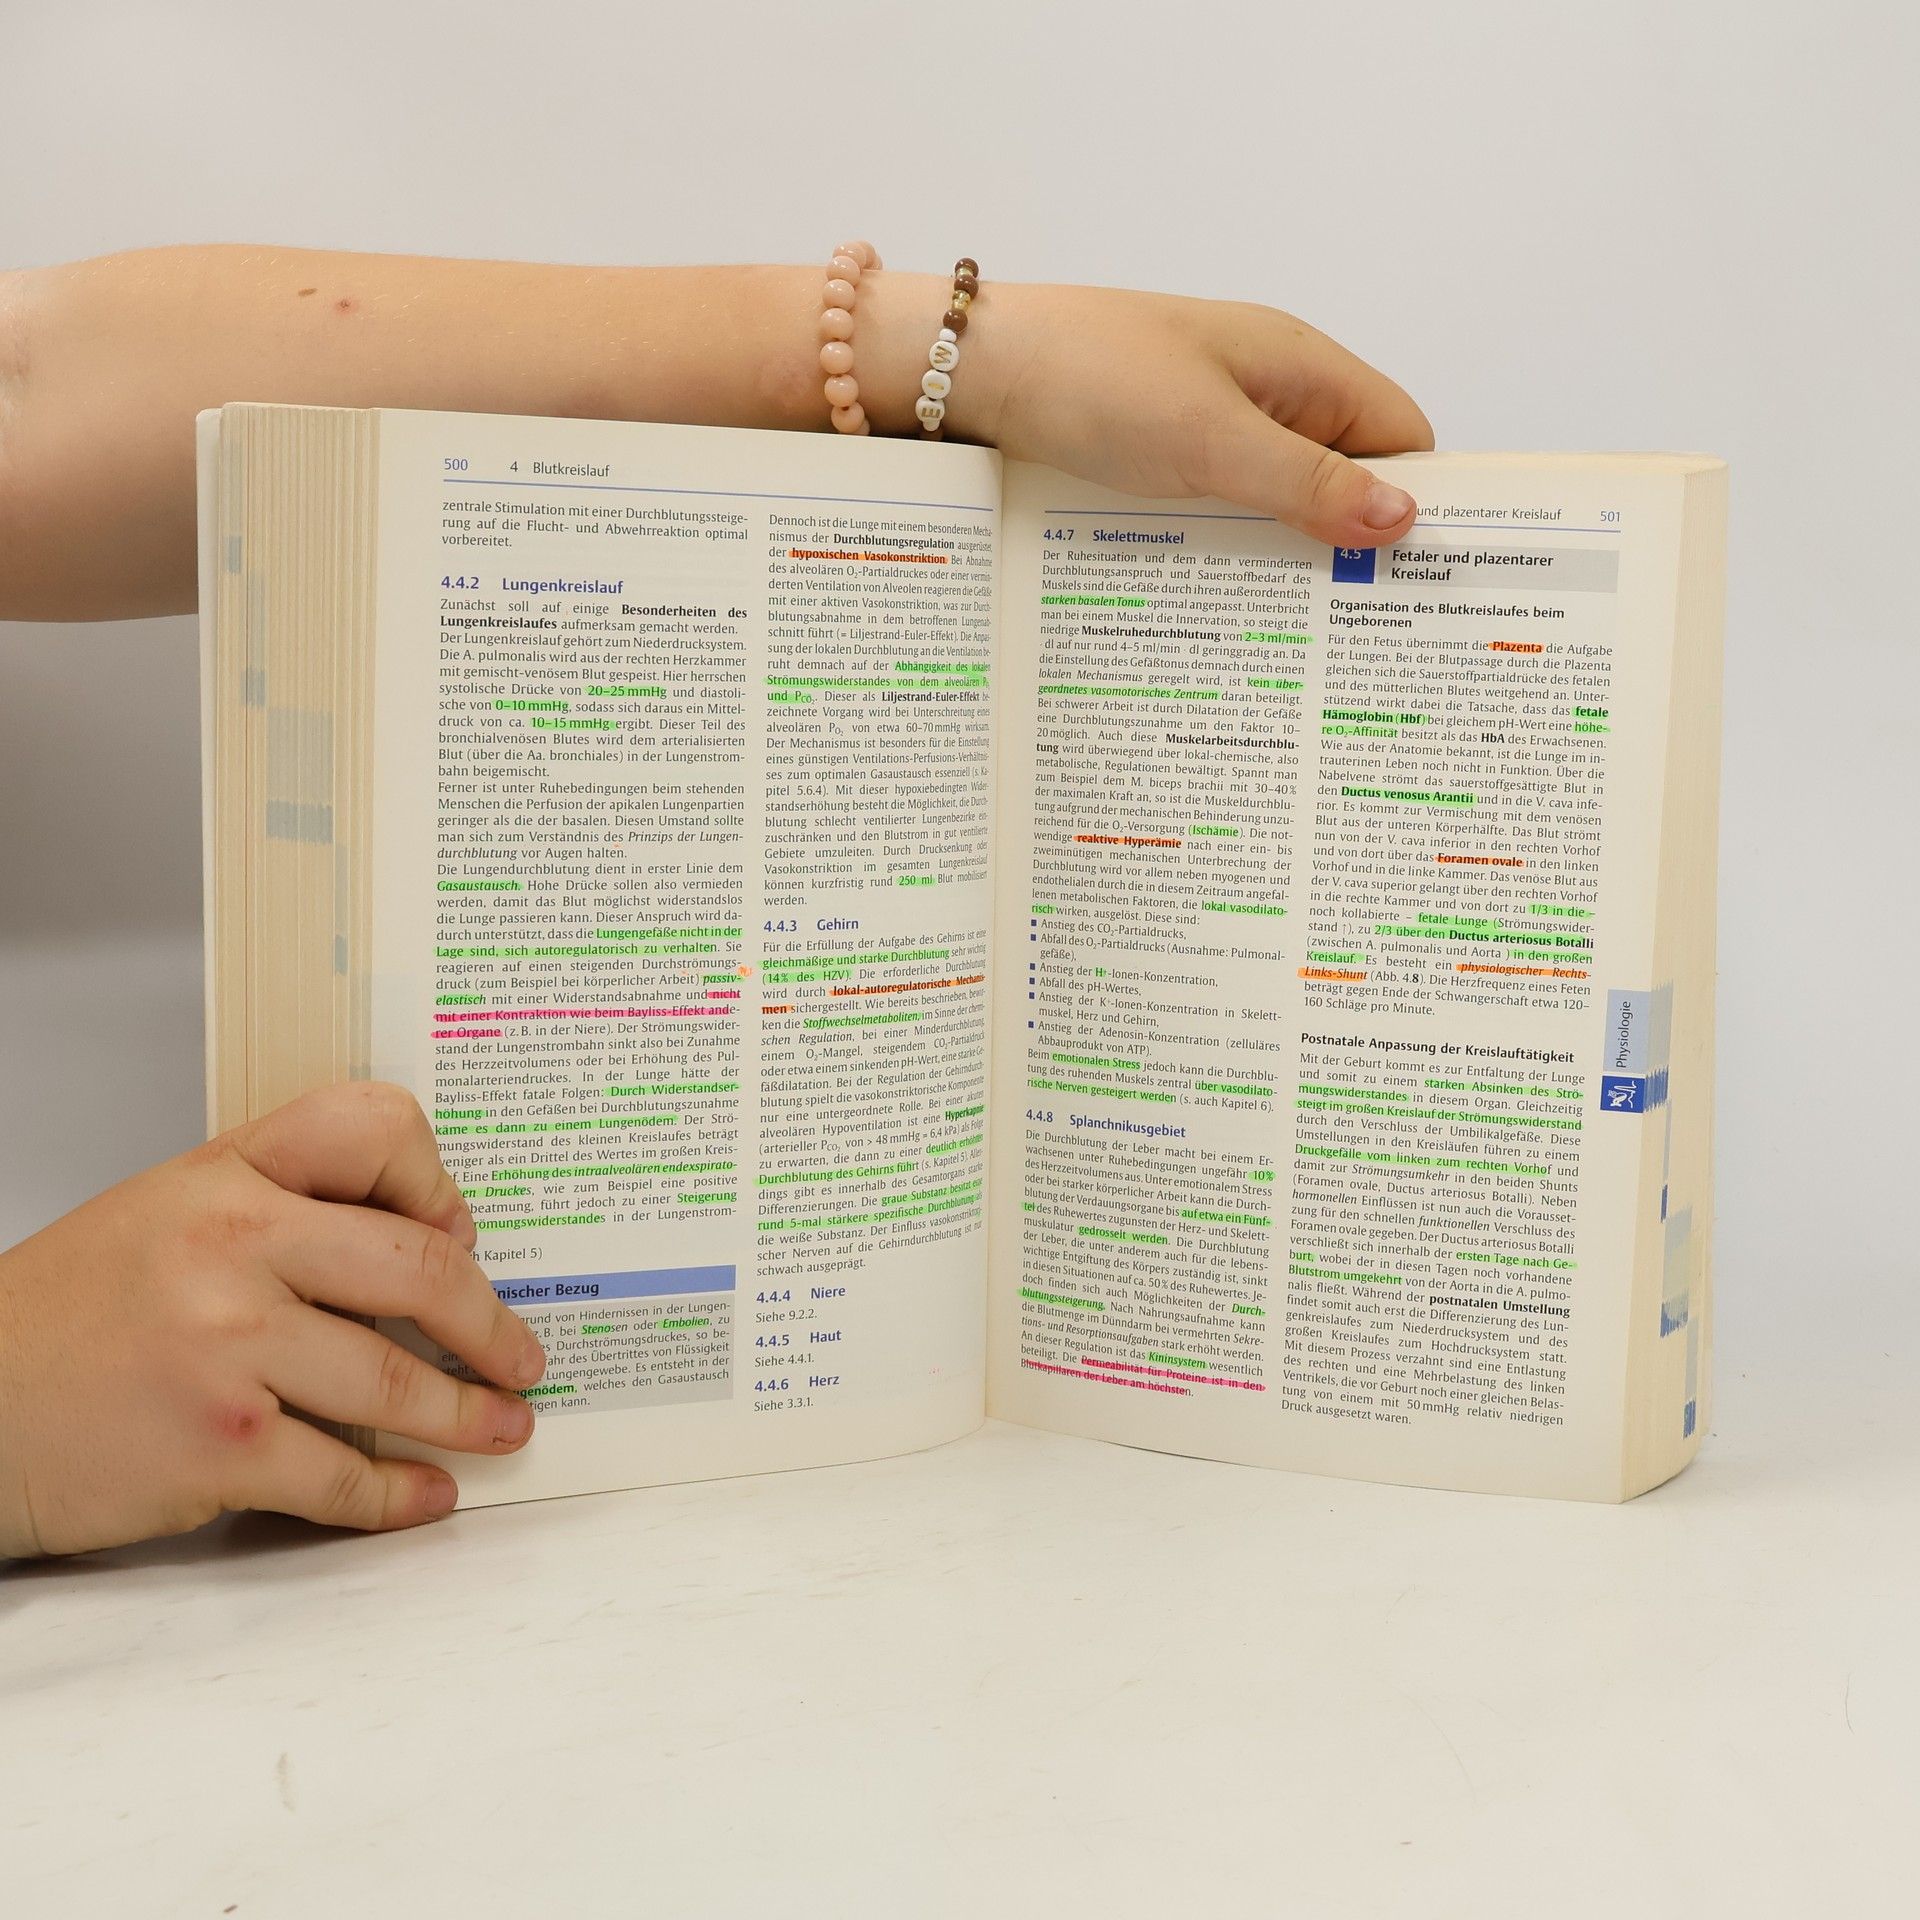 500 4 Blutkreislauf
zentrale Stimulation mit einer Durchblutungssteige-
rung auf die Flucht- und Abwehrreaktion optimal
vorbereitet.
4.4.2 Lungenkreislauf
Zunächst soll auf einige Besonderheiten des
Lungenkreislaufes aufmerksam gemacht werden.
Der Lungenkreislauf gehört zum Niederdrucksystem.
Die A. pulmonalis wird aus der rechten Herzkammer
mit gemischt-venösem Blut gespeist. Hier herrschen
systolische Drücke von 20–25 mmHg und diastoli-
sche von 0–10 mmHg, sodass sich daraus ein Mittel-
druck von ca. 10–15 mmHg ergibt. Dieser Teil des
bronchialvenösen Blutes wird dem arterialisierten
Blut (über die Aa. bronchiales) in der Lungenstrom-
bahn beigemischt.
Ferner ist unter Ruhebedingungen beim stehenden
Menschen die Perfusion der apikalen Lungenpartien
geringer als die der basalen. Diesen Umstand sollte
man sich zum Verständnis des Prinzips der Lungen-
durchblutung vor Augen halten.
Die Lungendurchblutung dient in erster Linie dem
Gasaustausch. Hohe Drücke sollen also vermieden
werden, damit das Blut möglichst widerstandslos
die Lunge passieren kann. Dieser Anspruch wird da-
durch unterstützt, dass die Lungengefäße nicht in der
Lage sind, sich autoregulatorisch zu verhalten. Sie
reagieren auf einen steigenden Durchströmungs-
druck (zum Beispiel bei körperlicher Arbeit) passiv-
elastisch mit einer Widerstandsabnahme und nicht
mit einer Kontraktion wie beim Bayliss-Effekt ande-
rer Organe (z. B. in der Niere). Der Strömungswider-
stand der Lungenstrombahn sinkt also bei Zunahme
des Herzzeitvolumens oder bei Erhöhung des Pul-
monalarteriendruckes. In der Lunge hätte der
Bayliss-Effekt fatale Folgen: Durch Widerstandser-
höhung in den Gefäßen bei Durchblutungszunahme
käme es dann zu einem Lungenödem. Der Strö-
mungswiderstand des kleinen Kreislaufes beträgt
weniger als ein Drittel des Wertes im großen Kreis-
f. Eine Erhöhung des intraalveolären endexspirato-
en Druckes, wie zum Beispiel eine positive
beatmung, führt jedoch zu einer Steigerung
römungswiderstandes in der Lungenstrom-
h Kapitel 5)
nischer Bezug
grund von Hindernissen in der Lungen-
z. B. bei Stenosen oder Embolien, zu
s Durchströmungsdruckes, so be-
ahr des Übertrittes von Flüssigkeit
Lungengewebe. Es entsteht in der
genödem, welches den Gasaustausch
tigen kann.
Dennoch ist die Lunge mit einem besonderen Mecha-
nismus der Durchblutungsregulation ausgerüstet,
der hypoxischen Vasokonstriktion. Bei Abnahme
des alveolären O₂-Partialdruckes oder einer vermin-
derten Ventilation von Alveolen reagieren die Gefäße
mit einer aktiven Vasokonstriktion, was zur Durch-
blutungsabnahme in dem betroffenen Lungenab-
schnitt führt (= Liljestrand-Euler-Effekt). Die Anpas-
sung der lokalen Durchblutung an die Ventilation be-
ruht demnach auf der Abhängigkeit des lokalen
Strömungswiderstandes von dem alveolären P
und PCO₂. Dieser als Liljestrand-Euler-Effekt be-
zeichnete Vorgang wird bei Unterschreitung eines
alveolären PO₂ von etwa 60–70 mmHg wirksam.
Der Mechanismus ist besonders für die Einstellung
eines günstigen Ventilations-Perfusions-Verhältnis-
ses zum optimalen Gasaustausch essenziell (s. Ka-
pitel 5.6.4). Mit dieser hypoxiebedingten Wider-
standserhöhung besteht die Möglichkeit, die Durch-
blutung schlecht ventilierter Lungenbezirke ein-
zuschränken und den Blutstrom in gut ventilierte
Gebiete umzuleiten. Durch Drucksenkung oder
Vasokonstriktion im gesamten Lungenkreislauf
können kurzfristig rund 250 ml Blut mobilisiert
werden.
4.4.3 Gehirn
Für die Erfüllung der Aufgabe des Gehirns ist eine
gleichmäßige und starke Durchblutung sehr wichtig
(14 % des HZV). Die erforderliche Durchblutung
wird durch lokal-autoregulatorische Mechanis-
men sichergestellt. Wie bereits beschrieben, bewir-
ken die Stoffwechselmetaboliten, im Sinne der chemi-
schen Regulation, bei einer Minderdurchblutung,
einem O₂-Mangel, steigendem CO₂-Partialdruck
oder etwa einem sinkenden pH-Wert, eine starke Ge-
fäßdilatation. Bei der Regulation der Gehirndurch-
blutung spielt die vasokonstriktorische Komponente
nur eine untergeordnete Rolle. Bei einer akuten
alveolären Hypoventilation ist eine Hyperkapnie
(arterieller PCO₂ von > 48 mmHg = 6,4 kPa) als Folge
zu erwarten, die dann zu einer deutlich erhöhten
Durchblutung des Gehirns führt (s. Kapitel 5). Aller-
dings gibt es innerhalb des Gesamtorgans starke
Differenzierungen. Die graue Substanz besitzt eine
rund 5-mal stärkere spezifische Durchblutung als
die weiße Substanz. Der Einfluss vasokonstriktori-
scher Nerven auf die Gehirndurchblutung ist nur
schwach ausgeprägt.
4.4.4 Niere
Siehe 9.2.2.
4.4.5 Haut
Siehe 4.4.1.
4.4.6 Herz
Siehe 3.3.1.
und plazentarer Kreislauf 501
4.4.7 Skelettmuskel
Der Ruhesituation und dem dann verminderten
Durchblutungsanspruch und Sauerstoffbedarf des
Muskels sind die Gefäße durch ihren außerordentlich
starken basalen Tonus optimal angepasst. Unterbricht
man bei einem Muskel die Innervation, so steigt die
niedrige Muskelruhedurchblutung von 2–3 ml/min
· dl auf nur rund 4–5 ml/min · dl geringgradig an. Da
die Einstellung des Gefäßtonus demnach durch einen
lokalen Mechanismus geregelt wird, ist kein über-
geordnetes vasomotorisches Zentrum daran beteiligt.
Bei schwerer Arbeit ist durch Dilatation der Gefäße
eine Durchblutungszunahme um den Faktor 10–
20 möglich. Auch diese Muskelarbeitsdurchblu-
tung wird überwiegend über lokal-chemische, also
metabolische, Regulationen bewältigt. Spannt man
zum Beispiel dem M. biceps brachii mit 30–40 %
der maximalen Kraft an, so ist die Muskeldurchblu-
tung aufgrund der mechanischen Behinderung unzu-
reichend für die O₂-Versorgung (Ischämie). Die not-
wendige reaktive Hyperämie nach einer ein- bis
zweiminütigen mechanischen Unterbrechung der
Durchblutung wird vor allem neben myogenen und
endothelialen durch die in diesem Zeitraum angefal-
lenen metabolischen Faktoren, die lokal vasodilato-
risch wirken, ausgelöst. Diese sind:
■ Anstieg des CO₂-Partialdrucks,
■ Abfall des O₂-Partialdrucks (Ausnahme: Pulmonal-
gefäße),
■ Anstieg der H⁺-Ionen-Konzentration,
■ Abfall des pH-Wertes,
■ Anstieg der K⁺-Ionen-Konzentration in Skelett-
muskel, Herz und Gehirn,
■ Anstieg der Adenosin-Konzentration (zelluläres
Abbauprodukt von ATP).
Beim emotionalen Stress jedoch kann die Durchblu-
tung des ruhenden Muskels zentral über vasodilato-
rische Nerven gesteigert werden (s. auch Kapitel 6).
4.4.8 Splanchnikusgebiet
Die Durchblutung der Leber macht bei einem Er-
wachsenen unter Ruhebedingungen ungefähr 10%
des Herzzeitvolumens aus. Unter emotionalem Stress
oder bei starker körperlicher Arbeit kann die Durch-
blutung der Verdauungsorgane bis auf etwa ein Fünf-
tel des Ruhewertes zugunsten der Herz- und Skelett-
muskulatur gedrosselt werden. Die Durchblutung
der Leber, die unter anderem auch für die lebens-
wichtige Entgiftung des Körpers zuständig ist, sinkt
in diesen Situationen auf ca. 50 % des Ruhewertes. Je-
doch finden sich auch Möglichkeiten der Durch-
blutungssteigerung. Nach Nahrungsaufnahme kann
die Blutmenge im Dünndarm bei vermehrten Sekre-
tions- und Resorptionsaufgaben stark erhöht werden.
An dieser Regulation ist das Kininsystem wesentlich
beteiligt. Die Permeabilität für Proteine ist in den
Blutkapillaren der Leber am höchsten.
4.5 Fetaler und plazentarer
Kreislauf
Organisation des Blutkreislaufes beim
Ungeborenen
Für den Fetus übernimmt die Plazenta die Aufgabe
der Lungen. Bei der Blutpassage durch die Plazenta
gleichen sich die Sauerstoffpartialdrücke des fetalen
und des mütterlichen Blutes weitgehend an. Unter-
stützend wirkt dabei die Tatsache, dass das fetale
Hämoglobin (Hbf) bei gleichem pH-Wert eine höhe-
re O₂-Affinität besitzt als das HbA des Erwachsenen.
Wie aus der Anatomie bekannt, ist die Lunge im in-
trauterinen Leben noch nicht in Funktion. Über die
Nabelvene strömt das sauerstoffgesättigte Blut in
den Ductus venosus Arantii und in die V. cava infe-
rior. Es kommt zur Vermischung mit dem venösen
Blut aus der unteren Körperhälfte. Das Blut strömt
nun von der V. cava inferior in den rechten Vorhof
und von dort über das Foramen ovale in den linken
Vorhof und in die linke Kammer. Das venöse Blut aus
der V. cava superior gelangt über den rechten Vorhof
in die rechte Kammer und von dort zu 1/3 in die –
noch kollabierte – fetale Lunge (Strömungswider-
stand ↑), zu 2/3 über den Ductus arteriosus Botalli
(zwischen A. pulmonalis und Aorta ) in den großen
Kreislauf. Es besteht ein physiologischer Rechts-
Links-Shunt (Abb. 4.8). Die Herzfrequenz eines Feten
beträgt gegen Ende der Schwangerschaft etwa 120–
160 Schläge pro Minute.
Postnatale Anpassung der Kreislauftätigkeit
Mit der Geburt kommt es zur Entfaltung der Lunge
und somit zu einem starken Absinken des Strö-
mungswiderstandes in diesem Organ. Gleichzeitig
steigt im großen Kreislauf der Strömungswiderstand
durch den Verschluss der Umbilikalgefäße. Diese
Umstellungen in den Kreisläufen führen zu einem
Druckgefälle vom linken zum rechten Vorhof und
damit zur Strömungsumkehr in den beiden Shunts
(Foramen ovale, Ductus arteriosus Botalli). Neben
hormonellen Einflüssen ist nun auch die Vorausset-
zung für den schnellen funktionellen Verschluss des
Foramen ovale gegeben. Der Ductus arteriosus Botalli
verschließt sich innerhalb der ersten Tage nach Ge-
burt, wobei der in diesen Tagen noch vorhandene
Blutstrom umgekehrt von der Aorta in die A. pulmo-
nalis fließt. Während der postnatalen Umstellung
findet somit auch erst die Differenzierung des Lun-
genkreislaufes zum Niederdrucksystem und des
großen Kreislaufes zum Hochdrucksystem statt.
Mit diesem Prozess verzahnt sind eine Entlastung
des rechten und eine Mehrbelastung des linken
Ventrikels, die vor Geburt noch einer gleichen Belas-
tung von einem mit 50 mmHg relativ niedrigen
Druck ausgesetzt waren.
Physiologie